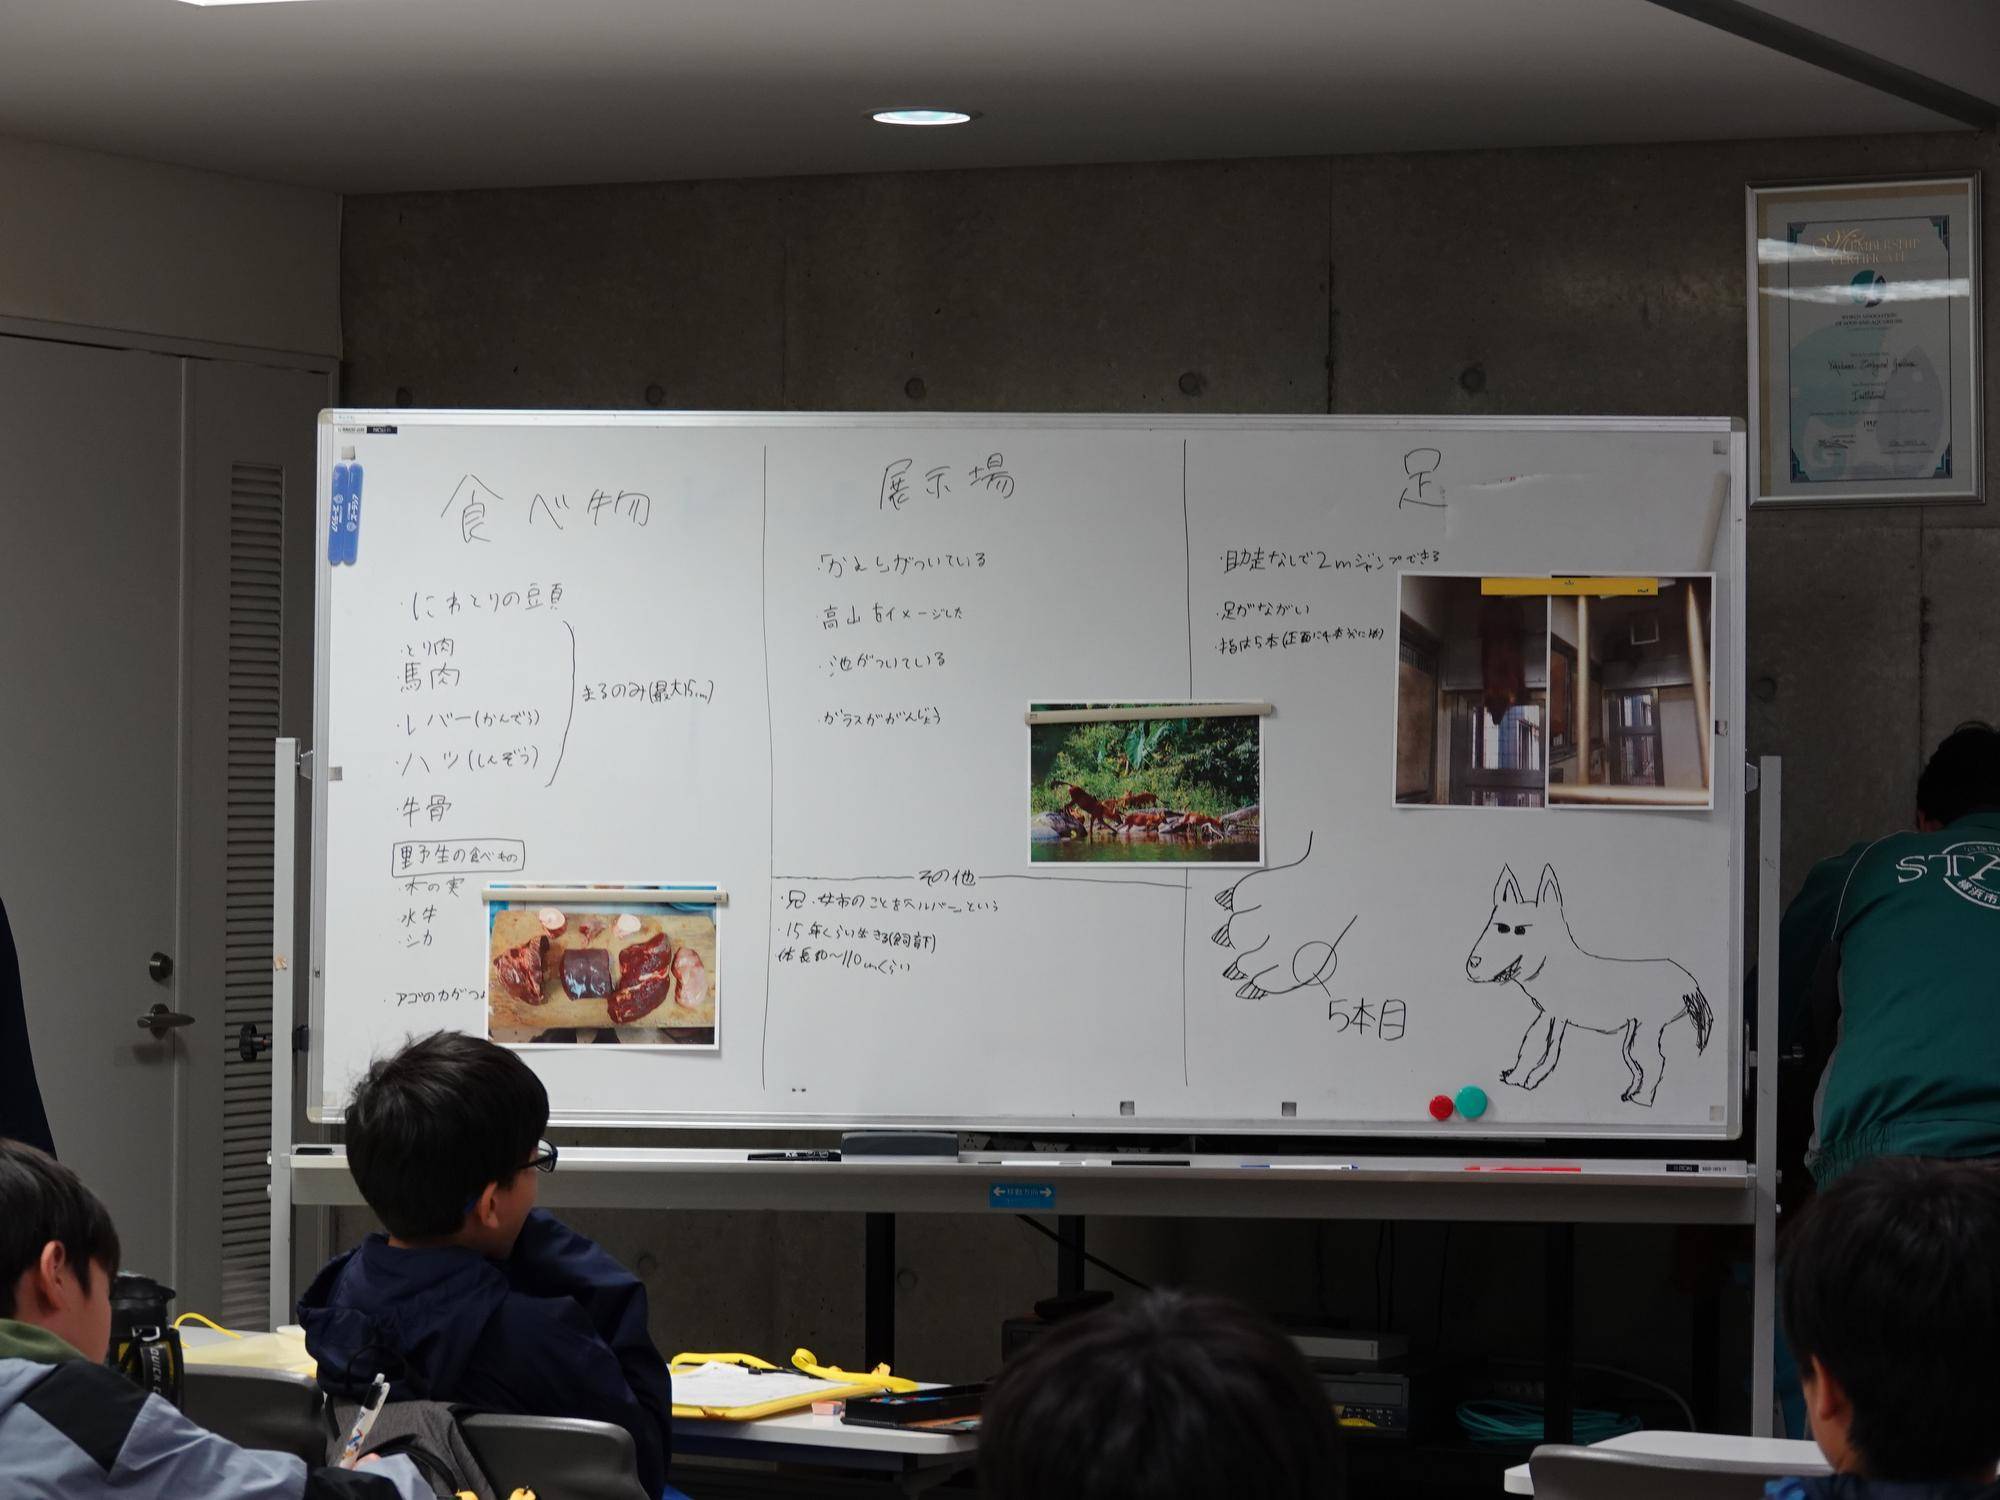 食べ物
・にわとりの頭
・とり肉
馬肉
・レバー(かんぞう)
・ハツ(しんぞう)
まるのみ(最大15cm)
・牛骨
野生の食べもの
・木の実
・水牛
・シカ
・アゴのカがつよ
展示場
・「かえしがついている
・高山をイメージした
・池がついている
・ガラスががんじょう
その他
・兄・姉のことをヘルパーという
・15年くらい生きる(飼育下)
体長80〜110cmくらい
足
・助走なしで2mジャンプできる
・足がながい
・指は5本(正面に4本
5本目
MEMBERSHIP
CERTIFICATE
WORLD ASSOCIATION
OF ZOOS AND AQUARIUMS
Yokohama Zoological Gardens
Institutional
移動方向
STA
横浜市
QUICK